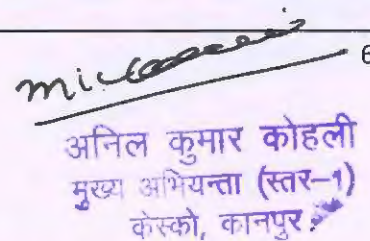 6
अनिल कुमार कोहली
मुख्य अभियन्ता (स्तर-1)
केस्को, कानपुर